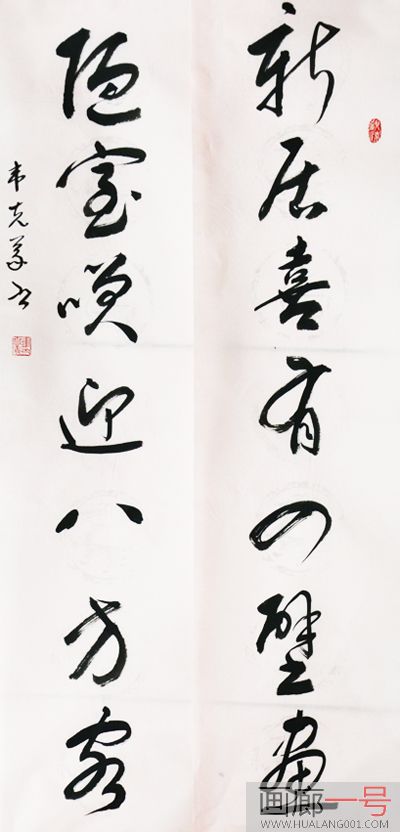 新居喜有四壁画
陋室喷迎八方客
韦克义书
画廊一号
WWW.HUALANG001.COM